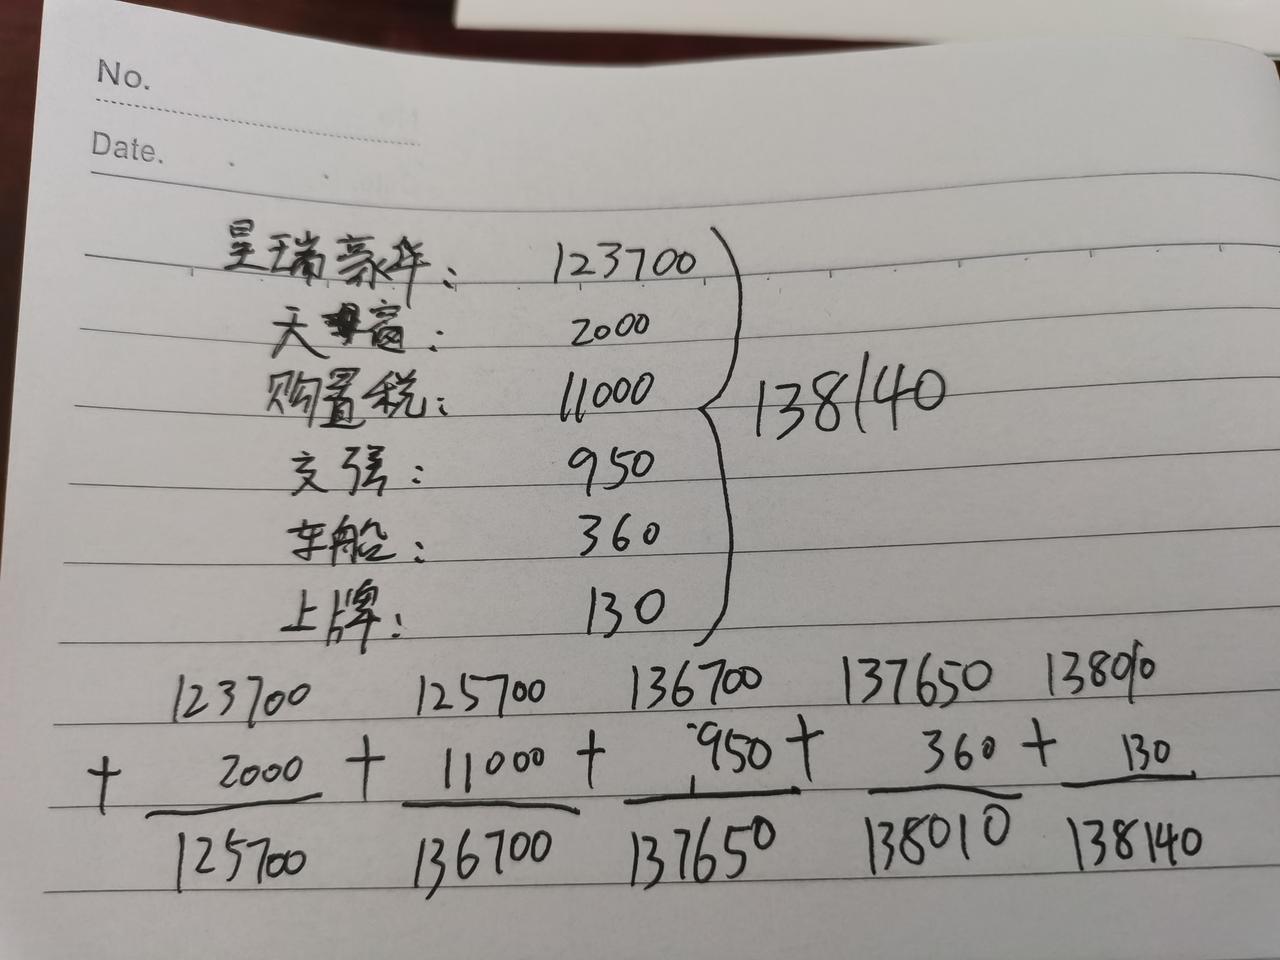 No.
Date.
星瑞豪华: 123700
天窗: 2000
购置税: 11000
交强: 950
车船: 360
上牌: 130
138140
123700 125700 136700 137650 138010
+ 2000 + 11000 + 950 + 360 + 130
125700 136700 137650 138010 138140